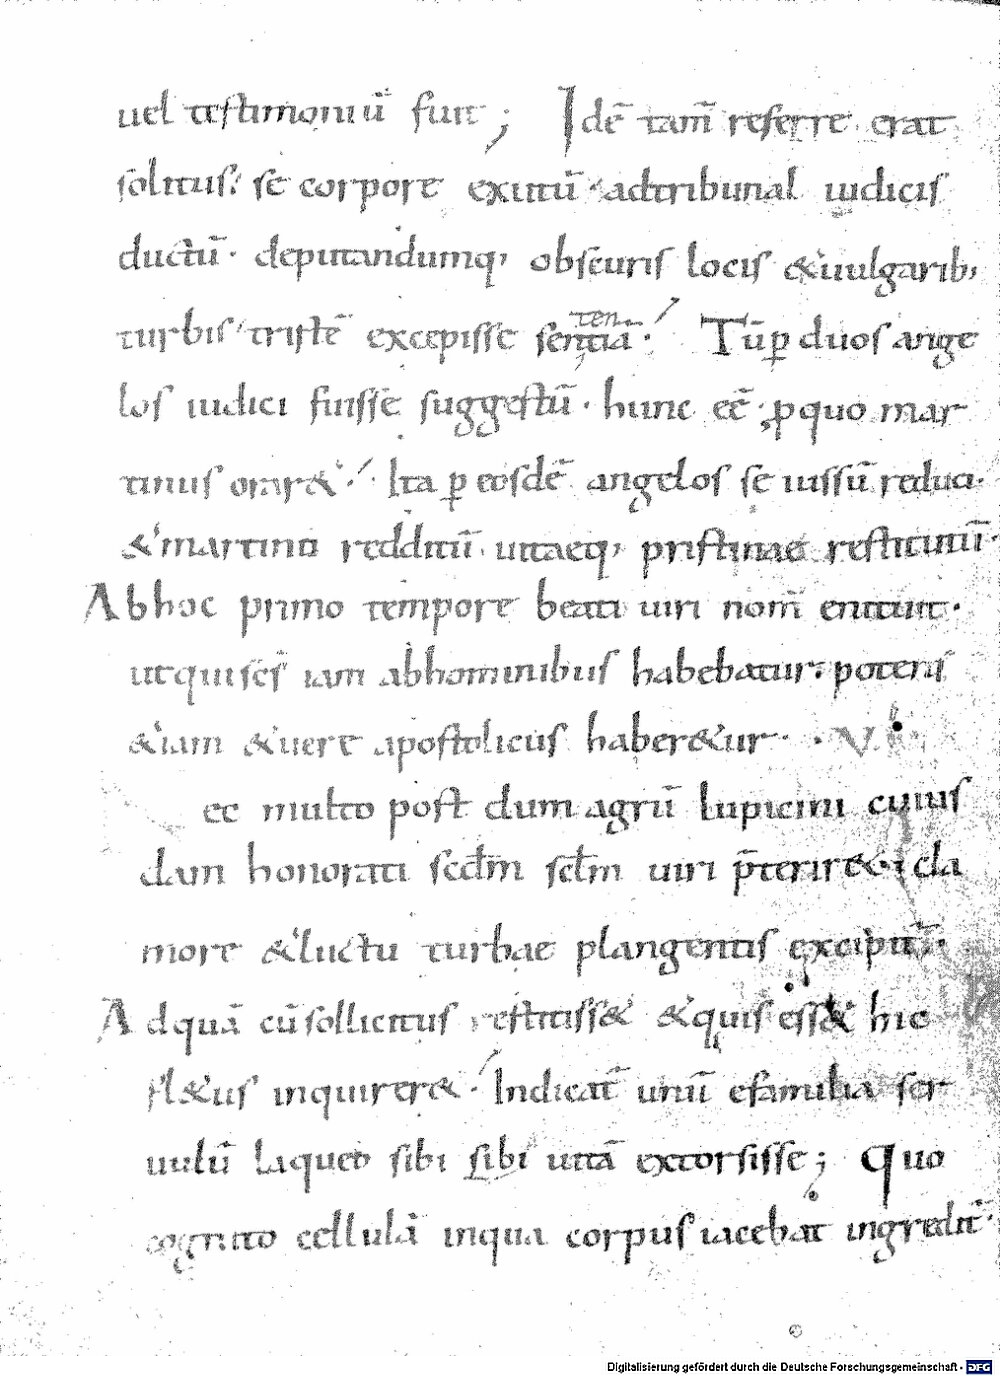 uel testimoniū fuit; Idē tam̄ referre erat
solitus. se corpore exutū. adtribunal iudicis
ductū. deputandumq; obscuris locis &uulgarib;
turbis. tristē excepisse sentiā.
ten
Tū ꝑ duos ange
los iudici fuisse suggestū. hunc eē. ꝓ quo mar
tinus orar&. Ita ꝑ eosdē angelos se iussū reduci.
&martino redditū uitaeq; pristinae restitutū.
Abhoc primo tempore beati uiri nom̄ enituit.
utqui sc̄s iam abhominibus habebatur. potens
&iam &uere apostolicus haber&ur. .V.
ec multo post dum agrū lupicini cuius
dam honorati scd̄m scd̄m uiri p̄terir& cla
more &luctu turbae plangentis excipit̄.
Adquā cū sollicitus restitiss& &quis ess& hic
fl&us inquirer&. Indicat̄ unū efamilia ser
uulū laqueo sibi sibi uitā extorsisse; Quo
cognito cellulā inqua corpus iacebat ingredit̄.
Digitalisierung gefördert durch die Deutsche Forschungsgemeinschaft - DFG